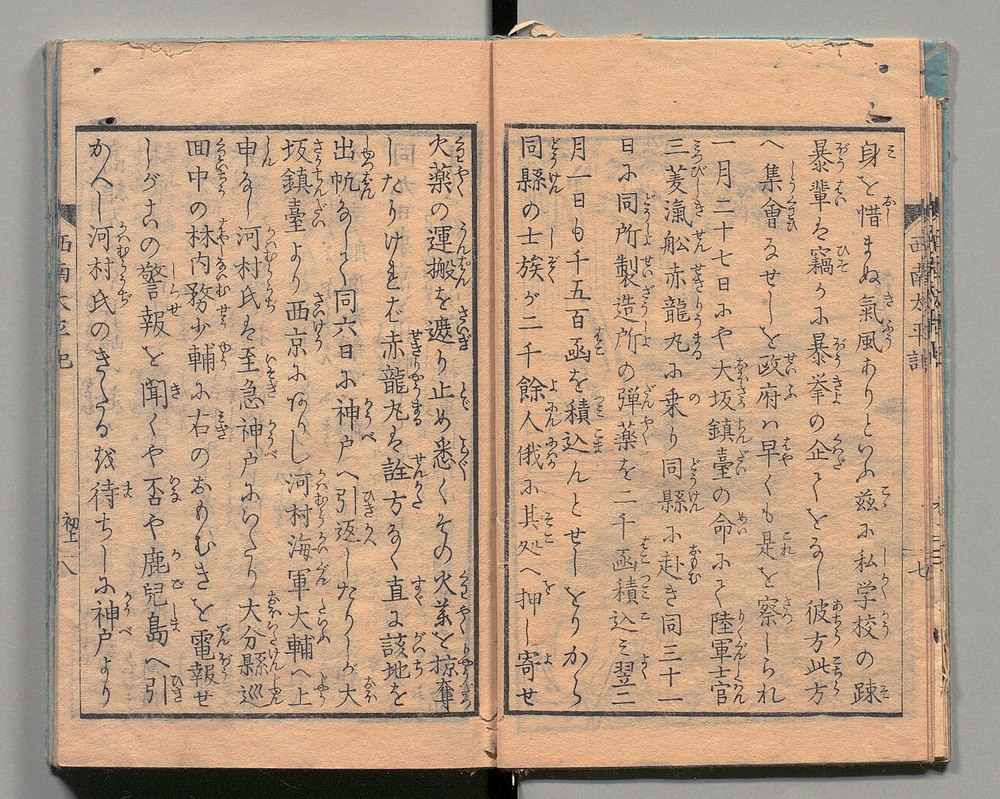 身を惜まぬ氣風ありといふ茲に私学校の踈
暴輩を竊かに暴挙の企てをなし彼方此方
へ集會なせしを政府ハ早くも是を察しられ
一月二十七日にや大坂鎮臺の命にて陸軍士官
三菱滊舩赤龍丸に乗り同縣に赴き同三十一
日に同所製造所の弾薬を二千函積込ミ翌二
月一日も千五百函を積込んとせしをりから
同縣の士族が二千餘人俄に其処へ押し寄せ
火薬の運搬を遮り止め悉くその火薬を掠奪
したりけれバ赤龍丸は詮方なく直に該地を
出帆なして同六日に神戸へ引返したりしが大
坂鎮臺より西京になりし河村海軍大輔へ上
申なし河村氏は至急神戸にいたり大分縣巡
回中の林内務少輔に右のおもむきを電報せ
しがこの警報を聞くや否や鹿兒島へ引
かへし河村氏のきたるを待ちしに神戸より
西南太平記
初上
八
西南太平記
七